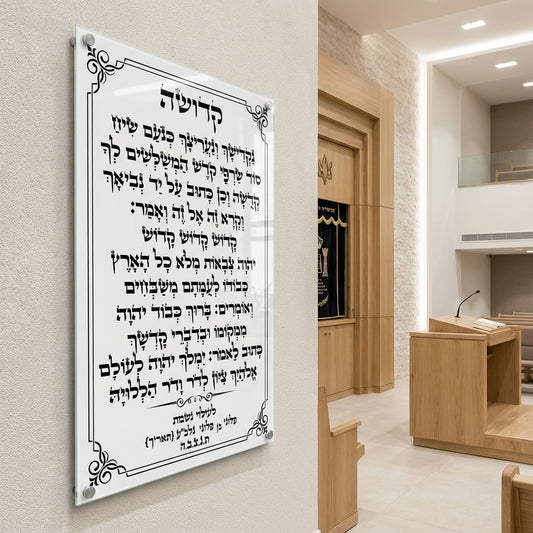 קדושה
נַקְדִּישָׁךְ וְנַעֲרִיצָךְ כְּנֹעַם שִׂיחַ
סוֹד שַׂרְפֵי קֹדֶשׁ הַמְשַׁלְּשִׁים לְךָ
קְדֻשָּׁה וְכֵן כָּתוּב עַל יַד נְבִיאָךְ
וְקָרָא זֶה אֶל זֶה וְאָמַר:
קָדוֹשׁ קָדוֹשׁ קָדוֹשׁ
יְהֹוָה צְבָאוֹת מְלֹא כָל הָאָרֶץ
כְּבוֹדוֹ לְעֻמָּתָם מְשַׁבְּחִים
וְאוֹמְרִים: בָּרוּךְ כְּבוֹד יְהֹוָה
מִמְּקוֹמוֹ וּבְדִבְרֵי קָדְשָׁךְ
כָּתוּב לֵאמֹר: יִמְלֹךְ יְהֹוָה לְעוֹלָם
אֱלֹהַיִךְ צִיּוֹן לְדֹר וָדֹר הַלְלוּיָהּ
לעילוי נשמת
פלוני בן פלוני נלב"ע (תאריך)
ת.נ.צ.ב.ה